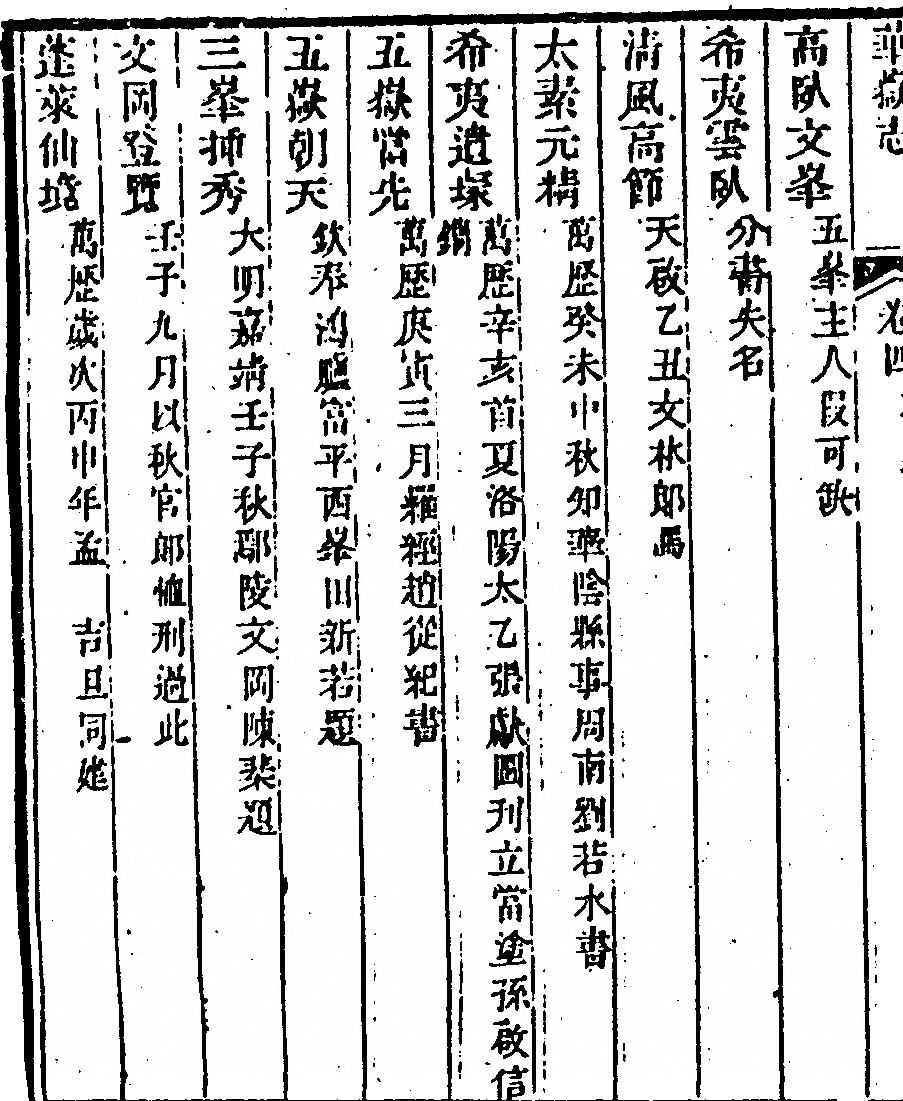 華嶽志 卷四
高臥文峯 五峯主人段可缺
希夷雲臥 分書失名
清風高節 天啟乙丑文林郎馮
太素元精 萬歷癸未中秋知華陰縣事周南劉若水書
希夷遺塚 萬歷辛亥首夏洛陽太乙張獻圖刋立當塗孫啟信
鐫
五嶽當先 萬歷庚寅三月糴經趙從祀書
五嶽朝天 欽奉鴻臚富平西峯田新若題
三峯挿秀 大明嘉靖壬子秋鄢陵文岡陳棐題
文岡登覽 壬子九月以秋官郎恤刑過此
蓬萊仙境 萬歷歲次丙申年孟 吉旦同建